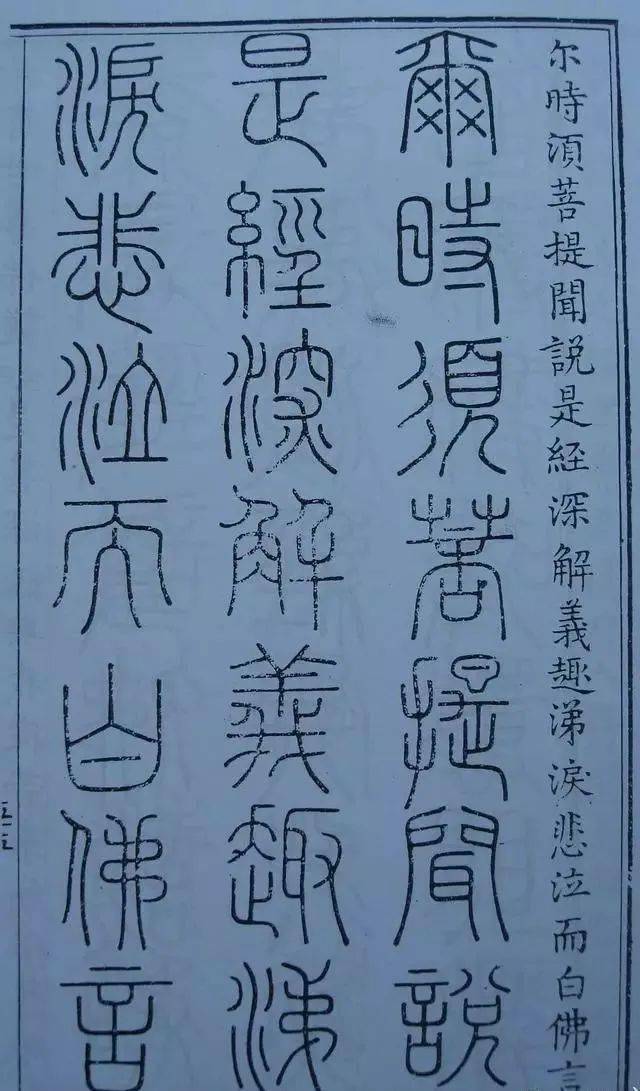 尔時湏菩提聞説是経深解義趣涕淚悲泣而白佛言
爾時須菩提聞說
是經深解義趣涕
淚悲泣而白佛言
五十五